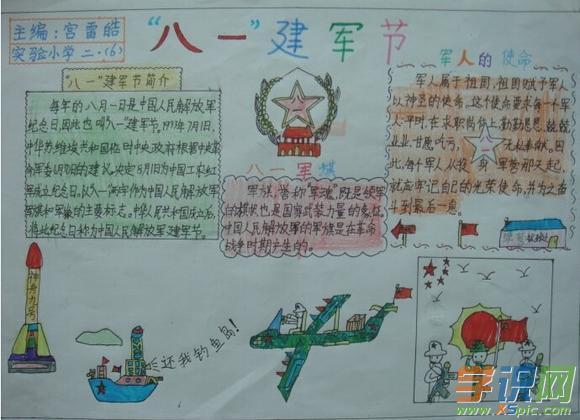 主编：宫雷皓
实验小学 二.(6)
“八一”建军节
“八一”建军节简介
每年的八月一日是中国人民解放军
纪念日，因此也叫八一建军节。1933年7月1日，
中华苏维埃共和国临时中央政府根据中央革
命军委6月30日的建议，决定8月1日为中国工农红
军成立纪念日。以八一作为中国人民解放军
军旗和军徽的主要标志。中华人民共和国成立后，
将此纪念日称为中国人民解放军建军节。
八一军旗
军旗，誉称“军魂”，既是领军
的旗帜也是国家武装力量的象征。
中国人民解放军的军旗是在革命
战争时期产生的。
军人的使命
军人属于祖国，祖国赋予军人
以神圣的使命，这个使命要求每一个军
人：平时，在求职岗位上勤勤恳恳，兢兢
业业，甘愿吃亏，无私奉献。因
此，每个军人从投身军营那天起，
就应牢记自己的光荣使命，并为之奋
斗到最后一息。
神舟九号
还我钓鱼岛！
学识网
www.XSpic.com